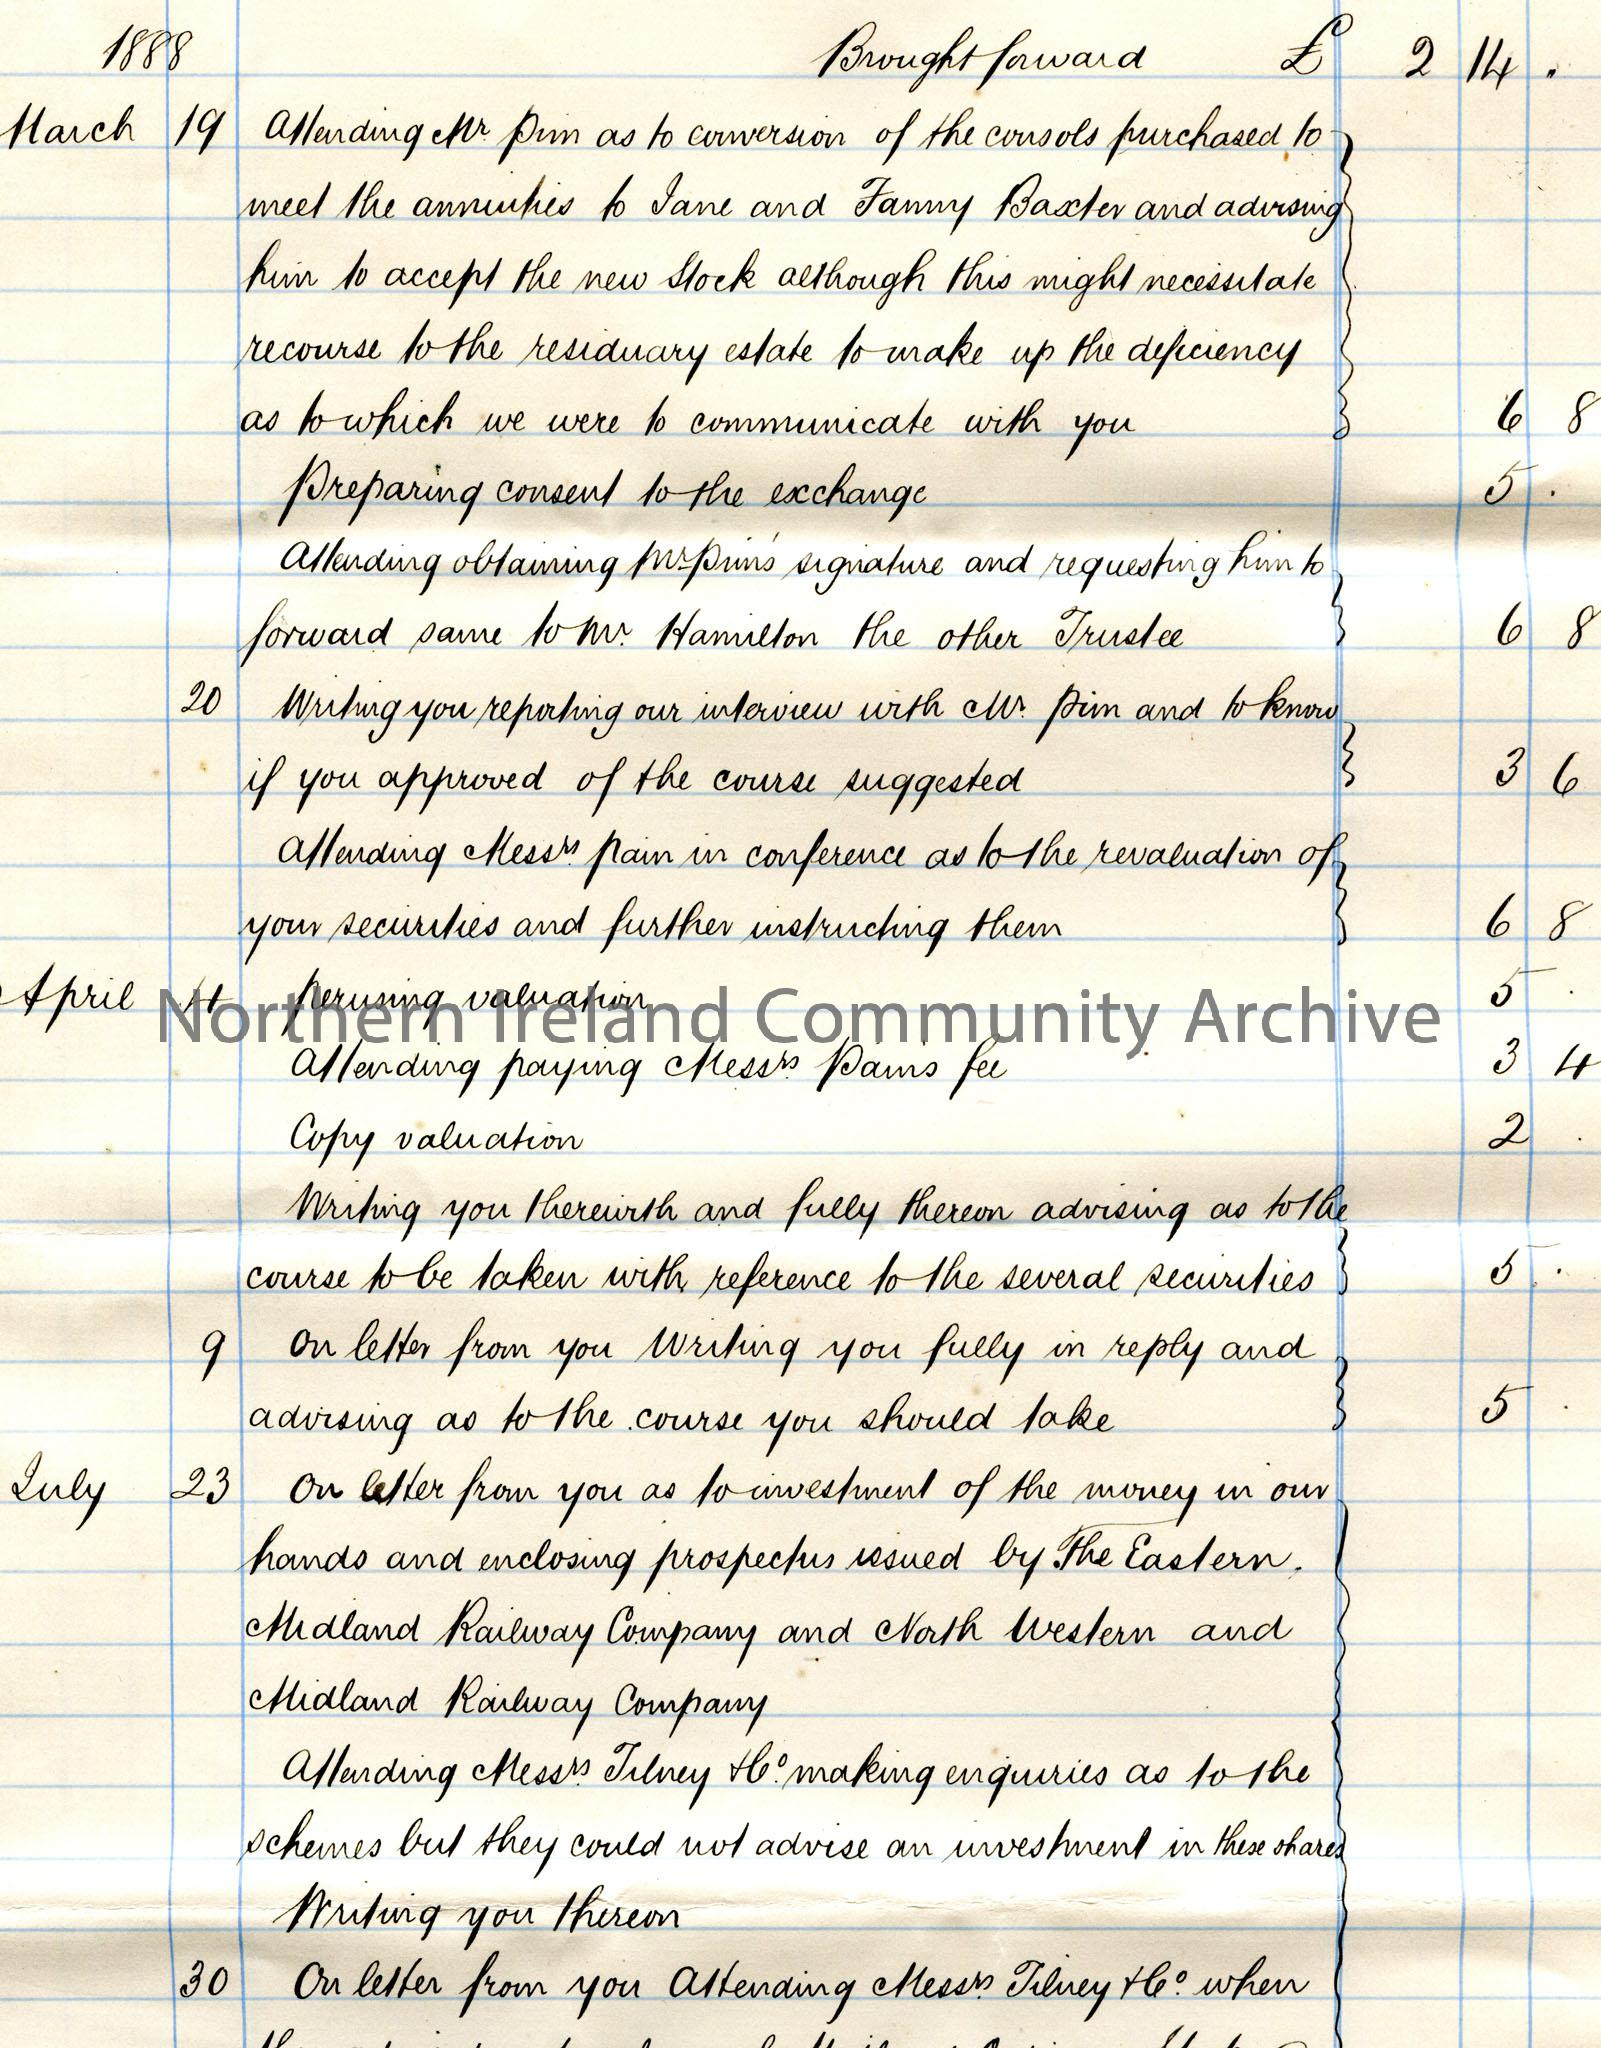 1888 Brought forward £ 2 14 .
March 19 Attending Mr Pim as to conversion of the consols purchased to
meet the annuities to Jane and Fanny Baxter and advising
him to accept the new Stock although this might necessitate
recourse to the residuary estate to make up the deficiency
as to which we were to communicate with you 6 8
Preparing consent to the exchange 5 .
Attending obtaining Mr Pim's signature and requesting him to
forward same to Mr. Hamilton the other Trustee 6 8
20 Writing you reporting our interview with Mr. Pim and to know
if you approved of the course suggested 3 6
Attending Messrs Pain in conference as to the revaluation of
your securities and further instructing them 6 8
April 4 Perusing valuation 5 .
Northern Ireland Community Archive
Attending paying Messrs Pains fee 3 4
Copy valuation 2 .
Writing you therewith and fully thereon advising as to the
course to be taken with reference to the several securities 5 .
9 On letter from you Writing you fully in reply and
advising as to the course you should take 5 .
July 23 On letter from you as to investment of the money in our
hands and enclosing prospectus issued by The Eastern,
Midland Railway Company and North Western and
Midland Railway Company
Attending Messrs. Tilney & Co. making enquiries as to the
schemes but they could not advise an investment in these shares
Writing you thereon
30 On letter from you Attending Messrs. Tilney & Co. when